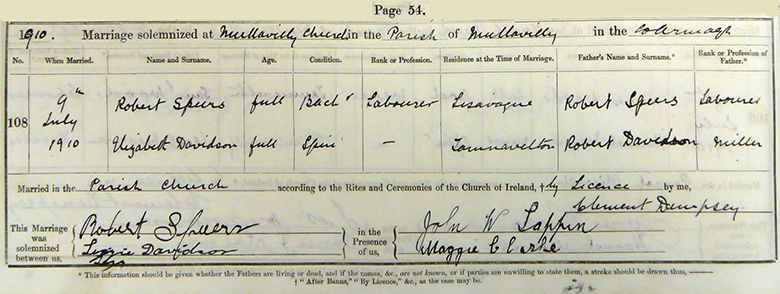 Page 54.
1910. Marriage solemnized at Mullavilly Church in the Parish of Mullavilly in the Co Armagh
No. When Married. Name and Surname. Age. Condition. Rank or Profession. Residence at the Time of Marriage. Father's Name and Surname.* Rank or Profession of Father.*
108 9th July 1910
Robert Speers full Bachr Labourer Lisavague Robert Speers Labourer
Elizabeth Davidson full Spin — Tamnavelton Robert Davidson Miller
Married in the Parish Church according to the Rites and Ceremonies of the Church of Ireland, † by Licence by me,
Clement Dempsey
This Marriage was solemnized between us, Robert Speers in the Presence of us, John W Lappin
Lizzie Davidson Maggie Clarke
* This information should be given whether the Fathers are living or dead, and if the names, &c., are not known, or if parties are unwilling to state them, a stroke should be drawn thus, ——
† "After Banns," "By Licence," &c., as the case may be.